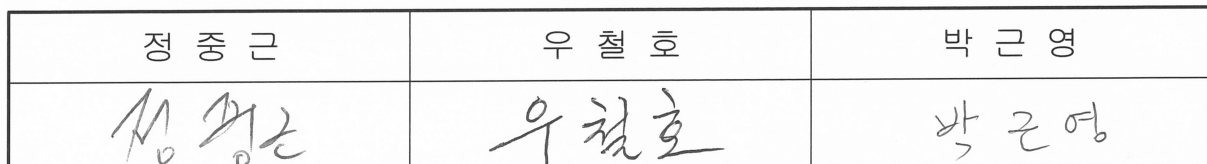 정 중 근 우 철 호 박 근 영
정중근 우철호 박근영